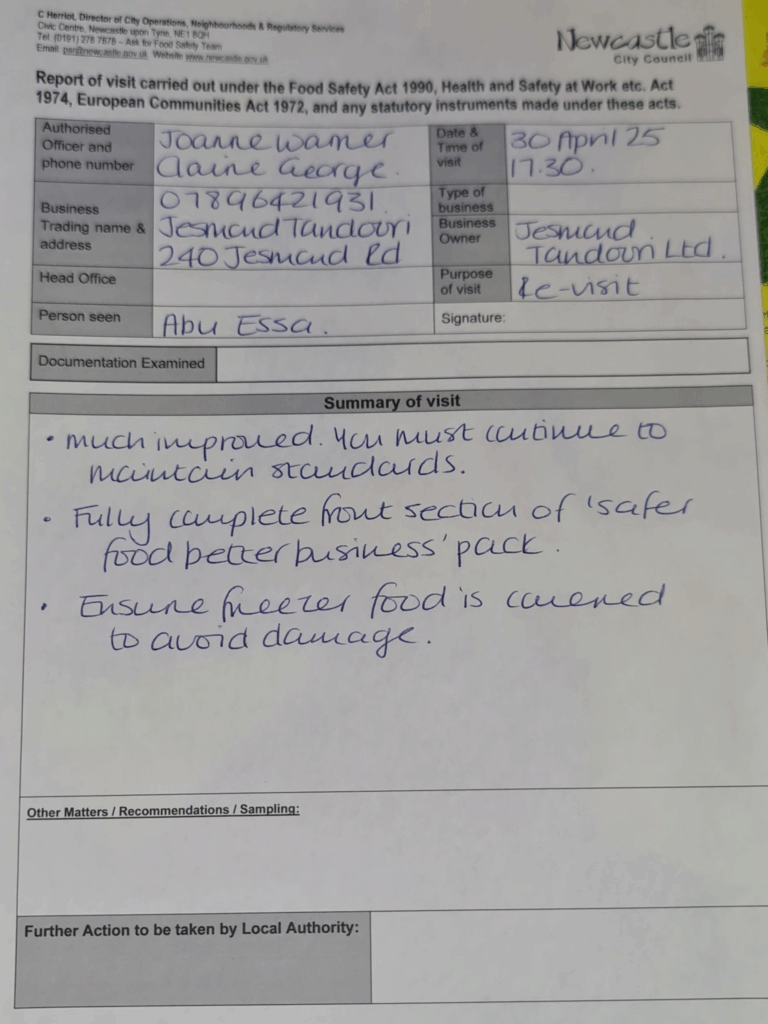 C Herriot, Director of City Operations, Neighbourhoods & Regulatory Services
Civic Centre, Newcastle upon Tyne, NE1 8QH
Tel. (0191) 278 7878 – Ask for Food Safety Team
Email: psr@newcastle.gov.uk Website www.newcastle.gov.uk
Newcastle
City Council
Report of visit carried out under the Food Safety Act 1990, Health and Safety at Work etc. Act
1974, European Communities Act 1972, and any statutory instruments made under these acts.
Authorised Officer and phone number
Joanne Warner
Claine George.
07896421931
Date & Time of visit
30 April 25
17.30.
Business Trading name & address
Jesmond Tandoori
240 Jesmond Rd
Type of business
Business Owner
Jesmond
Tandoori Ltd.
Head Office
Purpose of visit
Re-visit
Person seen
Abu Essa.
Signature:
Documentation Examined
Summary of visit
• much improved. You must continue to
maintain standards.
• Fully complete front section of 'safer
food better business' pack.
• Ensure freezer food is covered
to avoid damage.
Other Matters / Recommendations / Sampling:
Further Action to be taken by Local Authority: